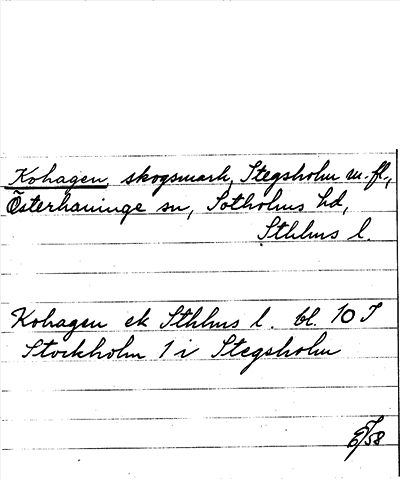 Kohagen, skogsmark, Stegsholm m.fl.,
Österhaninge sn, Sotholms hd,
Sthlms l.
Kohagen ek Sthlms l. bl. 10 I
Stockholm 1 i Stegsholm
/58